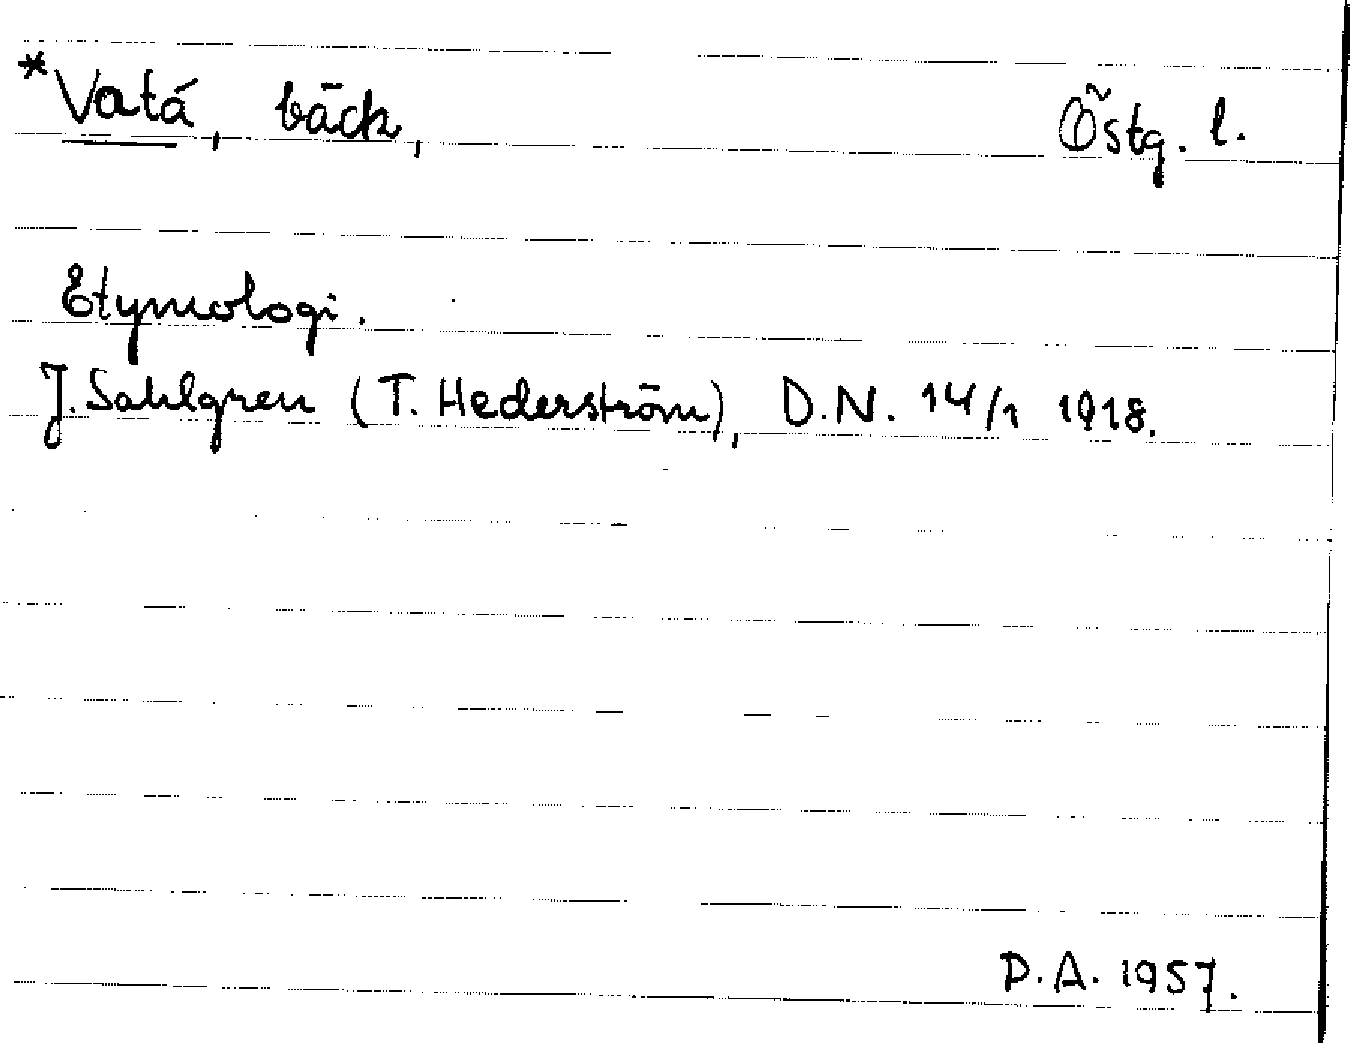 *Vatá, bäck, Östg. l.
Etymologi.
J. Sahlgren (T. Hederström), D.N. 14/1 1918.
D.A. 1957.